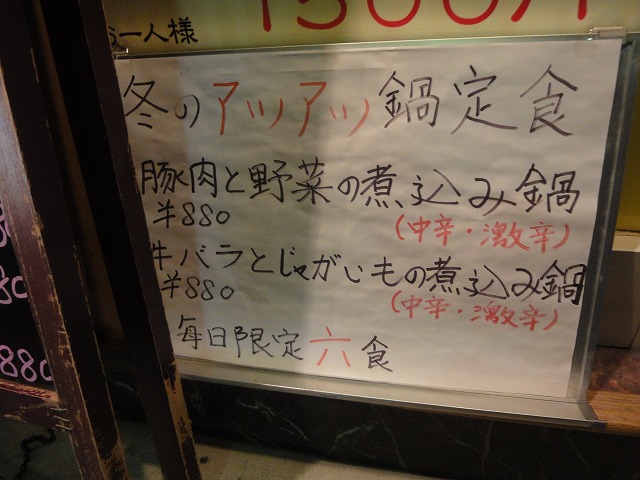 お一人様
冬のアツアツ鍋定食
豚肉と野菜の煮込み鍋
¥880
(中辛・激辛)
牛バラとじゃがいもの煮込み鍋
¥880
(中辛・激辛)
毎日限定六食
880